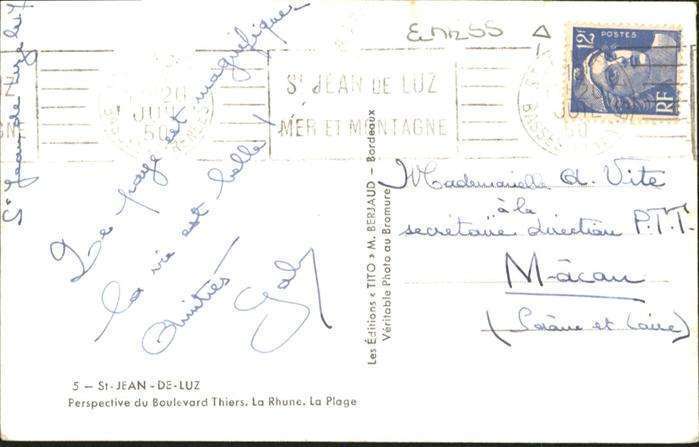 St Jean de Luz le
Le pays est magnifique.
la vie est belle !
Amitiés
Gaby
5 — St-JEAN-DE-LUZ
Perspective du Boulevard Thiers. La Rhune. La Plage
Les Éditions « TITO » M. BERJAUD — Bordeaux
Véritable Photo au Bromure
St JEAN DE LUZ
MER ET MONTAGNE
50
12F
POSTES
RF
Mademoiselle A. Vite
à la
secrétaire direction P.T.T.
Mâcon
(Saône et Loire)